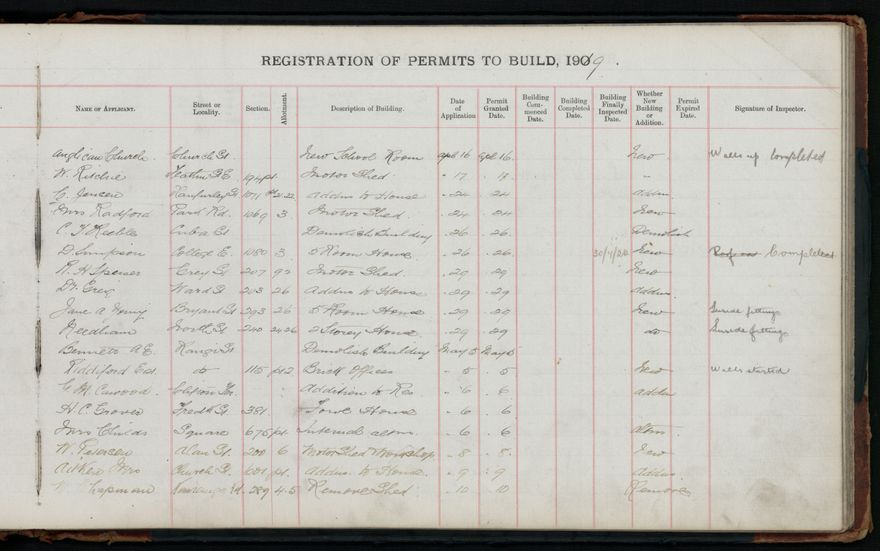 REGISTRATION OF PERMITS TO BUILD, 1919.
NAME OF APPLICANT. Street or Locality. Section. Allotment. Description of Building. Date of Application Permit Granted Date. Building Commenced Date. Building Completed Date. Building Finally Inspected Date. Whether New Building or Addition. Permit Expired Date. Signature of Inspector.
Anglican Church Church St. New School Room April 16 April 16. New Walls up Completed
W. Ritchie 194 pt. Motor Shed " 17 " 17 "
C. Jensen 1071 Addn to House " 24 24 addn.
Mrs Radford Park Rd. 1069 3 Motor Shed. " 24 . 24 New
Cuba St Demolish Building " 26 . 26. Demolish
D. Simpson College E. 1080 3 5 Room House " 26 . 26. 30/1/20 New Completed
Grey St 207 Motor Shed. " 29 29 New
Dr. Greig Ward St 203 26 Addn to House " 29 . 29 addn.
Jane A Bryant St 293 26 5 Room House " 29 . 29 New Inside fittings
Needham North St 240 24 26 2 Storey House " 29 . 29 do Inside fittings
Bennett A E. Rangi St Demolish Building May 5 May 5
Riddiford Est. do 115 pt 2 Brick Offices " 5 . 5 New Walls started
Clifton Ter. Addition to Res " 6 . 6 addn
H C. Grover 381 Fowl House " 6 . 6
Mrs Childs Square 675 pt. Internal altns. " 6 . 6 altns
W. Petersen Alan St. 200 6 Motor Shed Workshop " 8 . 8. New
Aitken Mrs Church St. pt. Addn. to House. " 9 : 9 Addn.
289 4.5 Remove Shed " 10 10 Remove